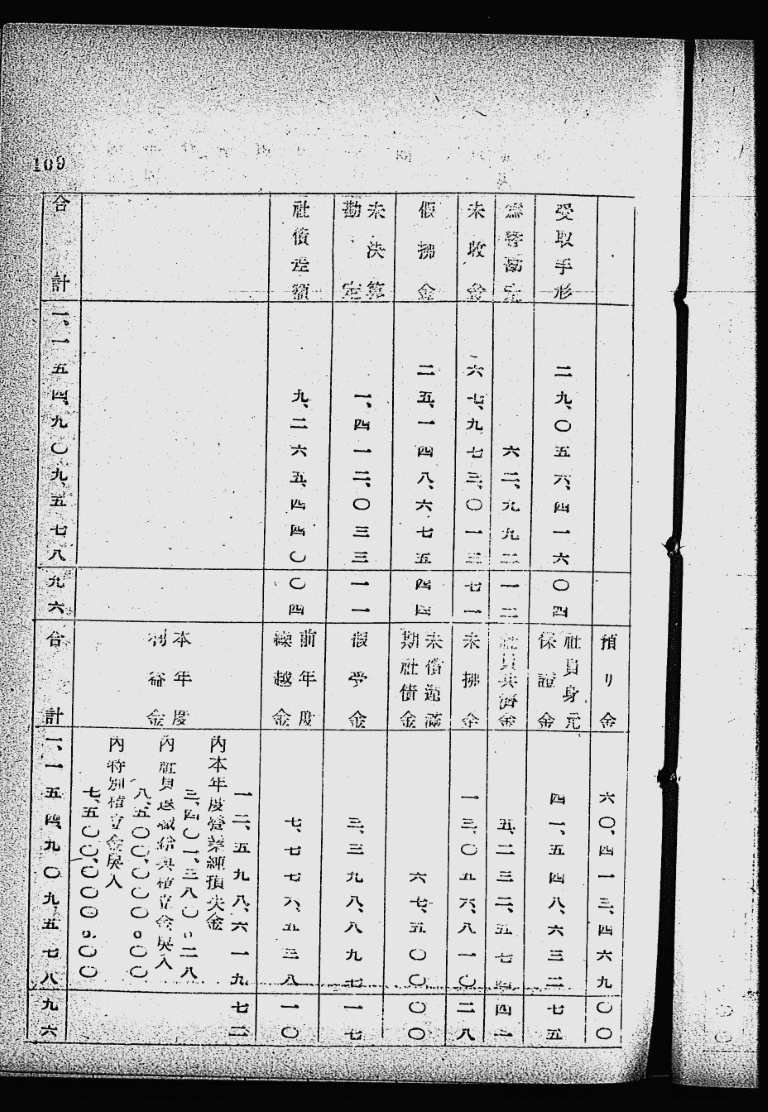 109
受取手形
二九、〇五六、四一六 〇四
為替勘定
六二、九九二 一二
未收金
六七、九七三、〇一三 七一
假拂金
二五、一四八、六七五 四四
未決算
勘定
一、四一二、〇三三 一一
社債差額
九、二六五、四四〇 〇四
合計
一、一五四、九〇九、五七八 九六
預り金
六〇、四一三、四六九 〇〇
社員身元
保證金
四一、五四八、六三二 七五
社員共濟金
五、二三二、五七四 四二
未拂金
一三、〇五六、八一〇 二八
未償還滿
期社債金
六七、五〇〇 〇〇
假受金
三、三九八、八九七 一七
前年度
繰越金
七、七七六、五三八 一〇
本年度
利益金
一二、五九八、六一九 七二
內本年度營業純損失金
三、四〇一、三八〇。二八
內社員退職給與積立金戾入
八、五〇〇、〇〇〇。〇〇
內特別積立金戾入
七、五〇〇、〇〇〇。〇〇
合計
一、一五四、九〇九、五七八 九六